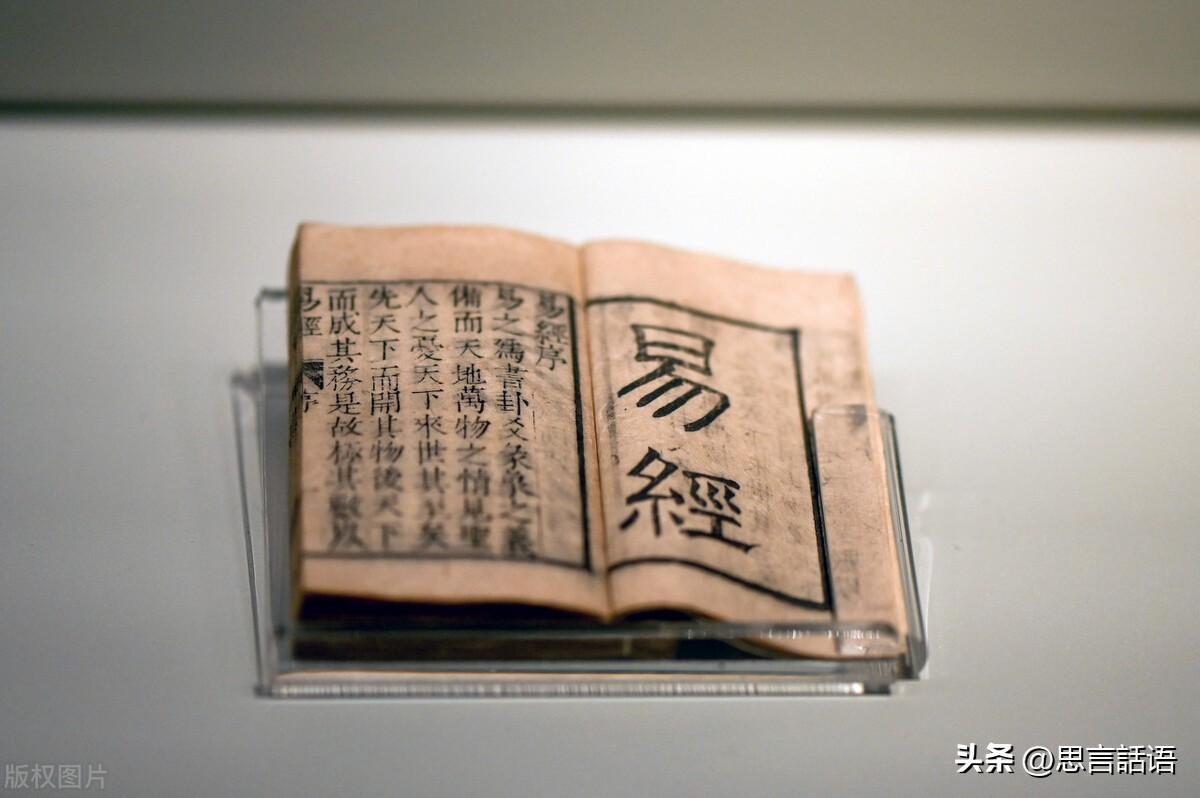 易
經
易經序
易之爲書卦爻彖象之義
備而天地萬物之情見聖
人之憂天下來世其至矣
先天下而開其物後天下
而成其務是故極其數以
易經 序
版权图片
头条 @思言話语